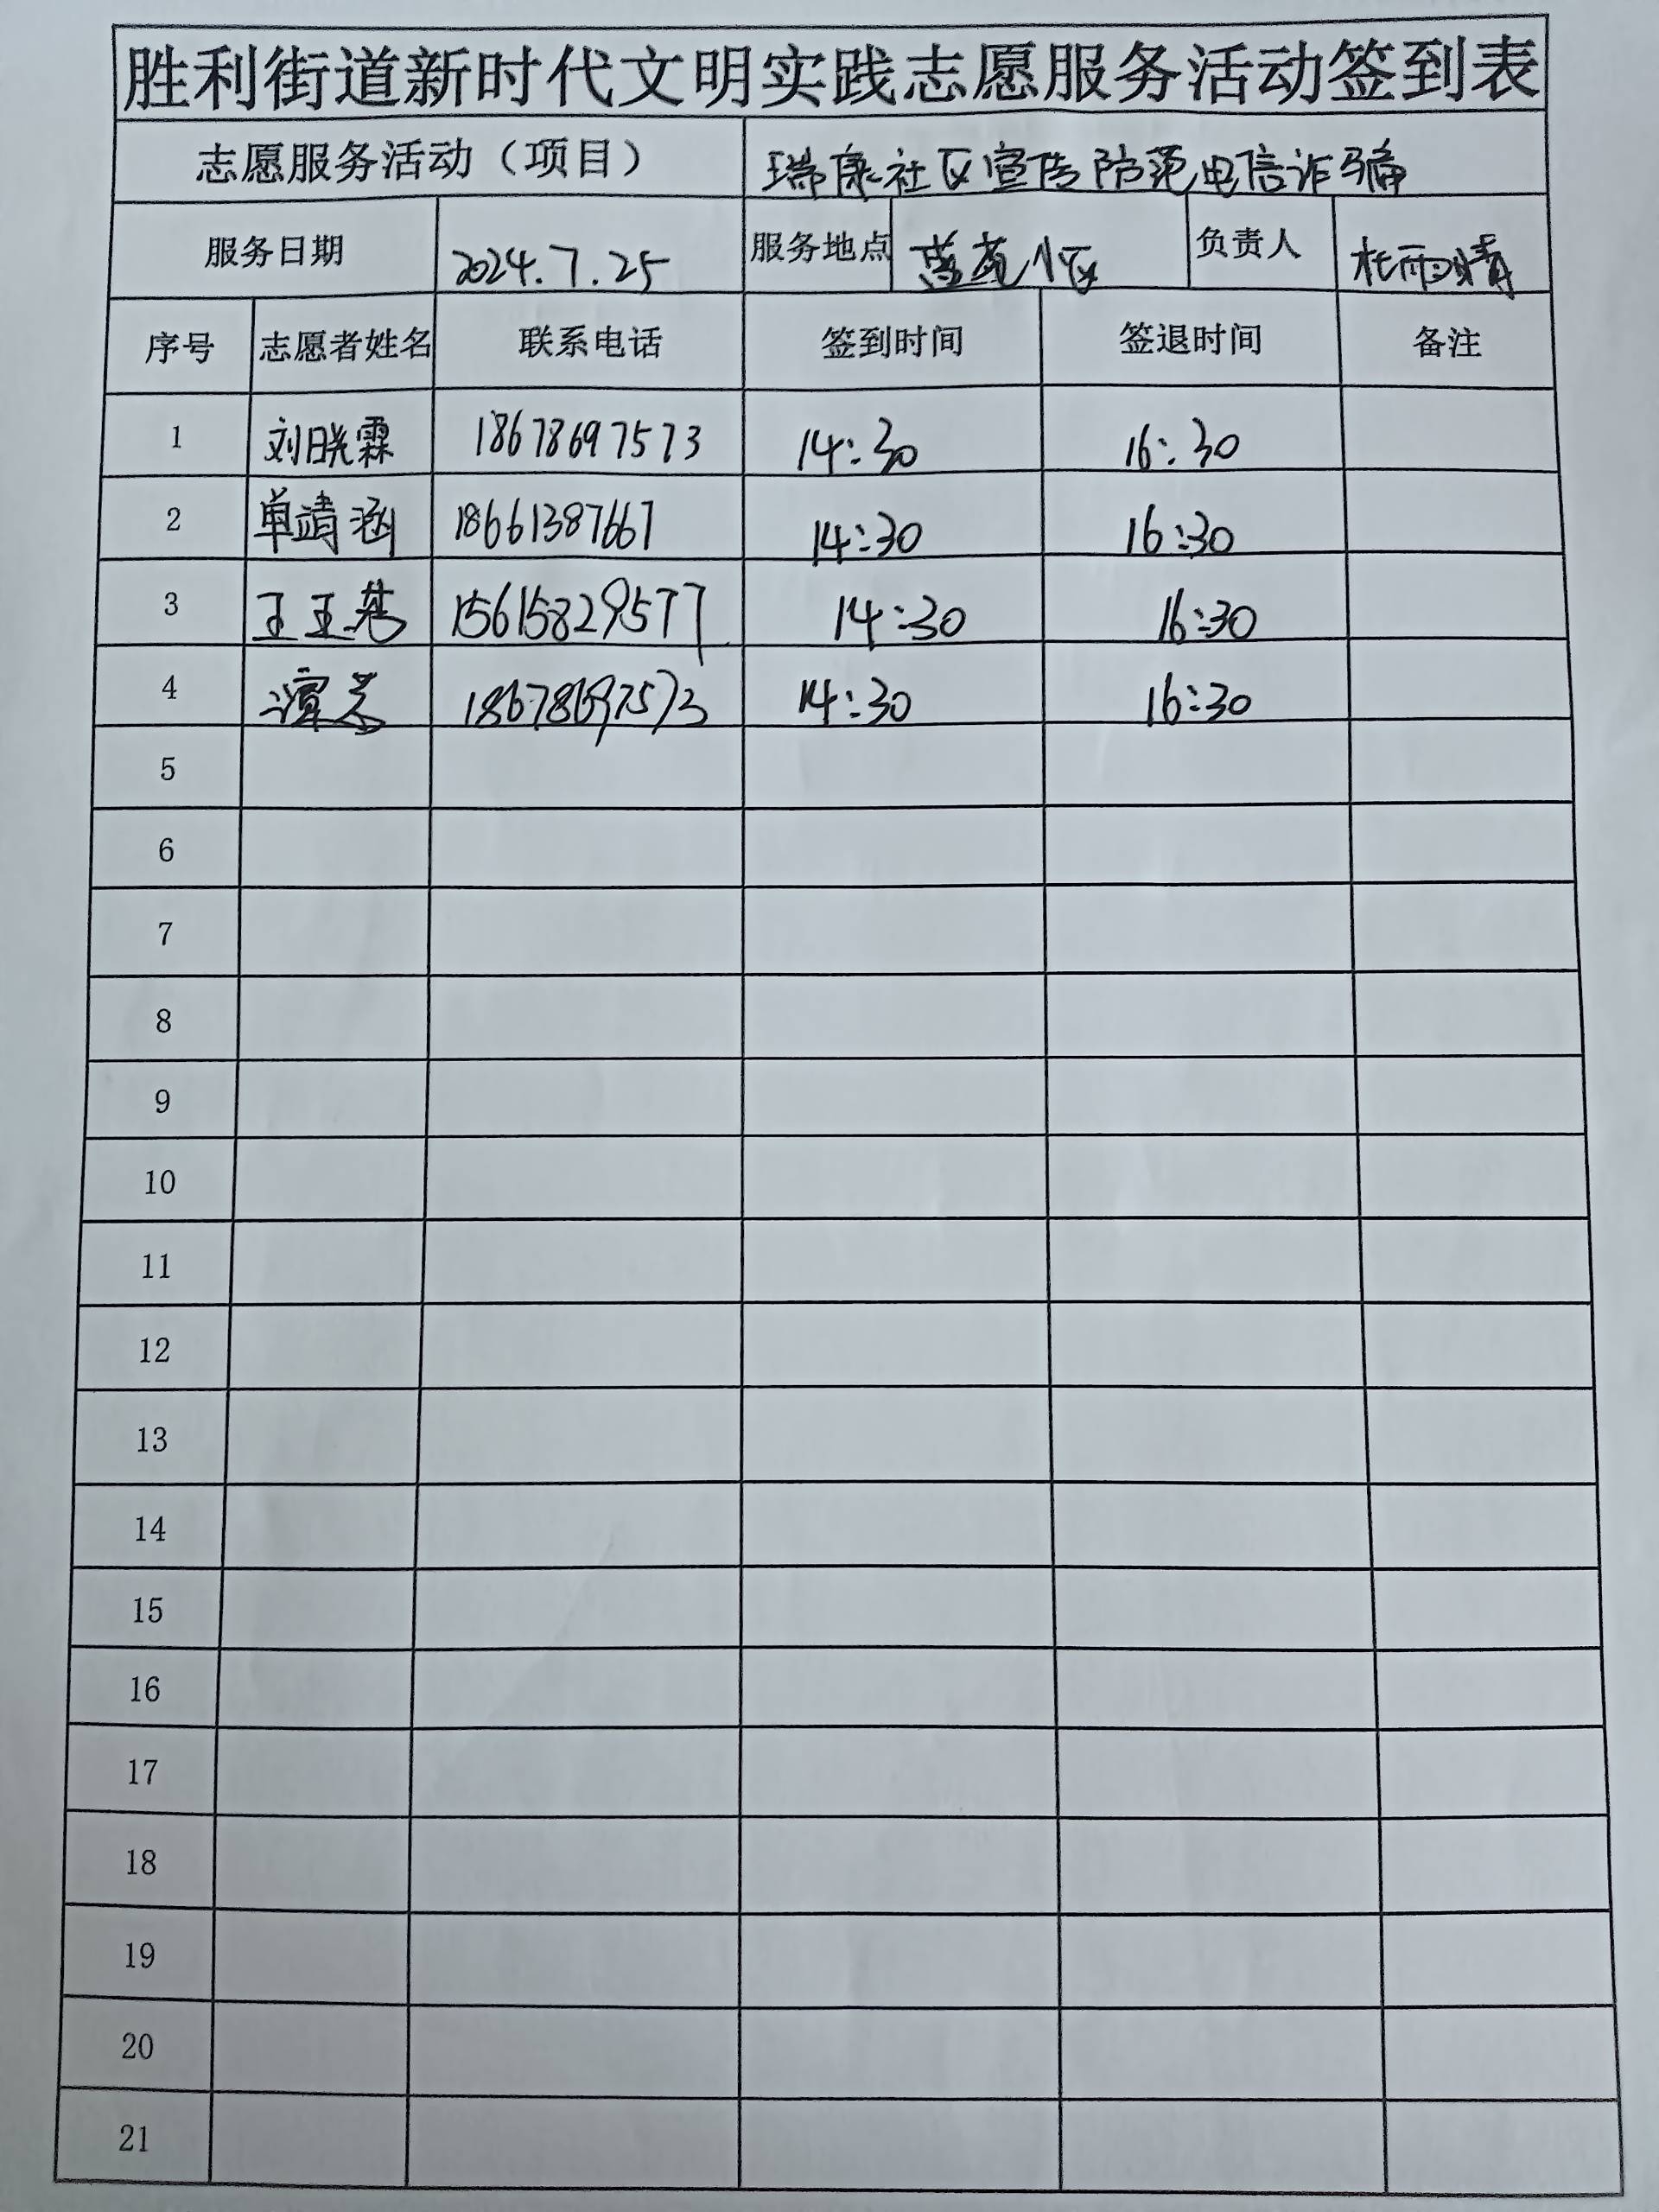 胜利街道新时代文明实践志愿服务活动签到表
志愿服务活动（项目） 瑞康社区宣传防范电信诈骗
服务日期 2024.7.25 服务地点 小区 负责人 杜雨晴
序号 志愿者姓名 联系电话 签到时间 签退时间 备注
1 刘晓霖 18678697573 14:30 16:30
2 单靖涵 18661387667 14:30 16:30
3 15615829577 14:30 16:30
4 18678697573 14:30 16:30
5
6
7
8
9
10
11
12
13
14
15
16
17
18
19
20
21